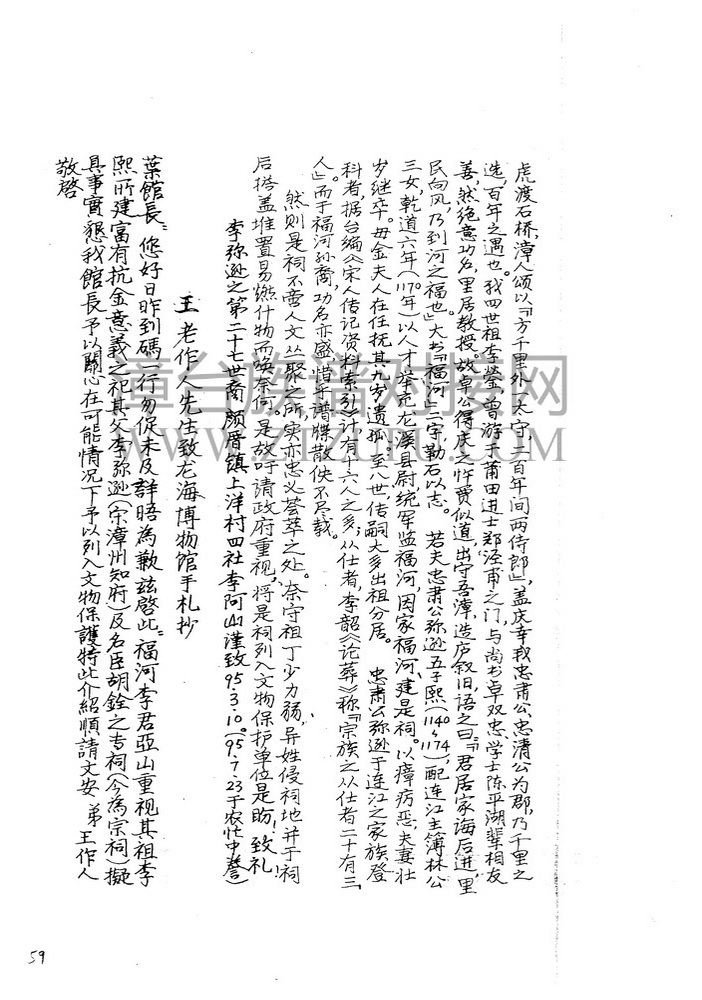 虎渡石桥,漳人颂以『方千里外一太守,一百年间两侍郎』,盖庆幸我忠肃公、忠清公为郡,乃千里之
选,百年之遇也。我四世祖李莹,曾游于莆田进士郑泾甫之门,与尚书卓双忠、学士陈平湖辈相友
善,然绝意功名,里居教授。故卓公得庆之忤贾似道,出守吾漳,造庐叙旧语之曰:『君居家诲后进,里
民向风,乃到河之福也』大书『福河』二字,勒石以志。 若夫忠肃公弥逊五子熙(1140~1174),配连江主簿林公
三女,乾道六年(1170年)以人才举充龙溪县尉统军监福河,因家福河,建是祠。以瘴疠恶,夫妻壮
岁继卒。毋金夫人在任抚其九岁遗孤。至八世,传嗣大多出祖分居。 忠肃公弥逊于连江之家族登
科者,据台编《宋人传记资料索引》计有十六人之多;从仕者,李韶《论葬》称『宗族之从仕者二十有三
人』而于福河孙裔,功名亦盛,惜乎谱牒散佚不尽载。
然则是祠不啻人文丛聚之所,实亦忠义荟萃之处。奈守祖丁少力弱,异姓侵祠地并于祠
后搭盖堆置易燃什物而唤奈何。是故吁请政府重视,将是祠列入文物保护单位是盼!致礼!
李弥逊之第二十七世裔颜厝镇上洋村四社李阿山谨致95.3.10。(95.7.23于农忙中誊)
王老作人先生致龙海博物馆手札抄
葉館長:您好日昨到碼一行匆促未及詳晤為歉兹啓此:福河李君亞山重視其祖李
熙所建富有抗金意義之祀其父李弥逊(宋漳州知府)及名臣胡銓之专祠(今為宗祠)擬
具事實懇我館長予以關心在可能情况下予以列入文物保護特此介紹順請文安 弟王作人
敬啓
59
章台族谱对接网
WWW.ZTZUPU.COM